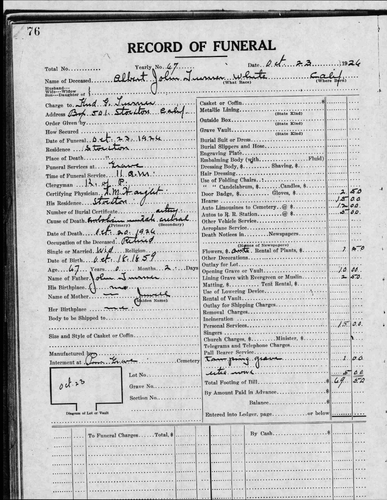 76
RECORD OF FUNERAL
Total No. Yearly No. 67 Date Oct 23 1926
Name of Deceased Albert John Turner White Calif
(What Race)
Husband—
Wife—Widow
Son—Daughter of
Charge to Fred G. Turner
Address Box 501. Stockton Calif.
Order Given by
How Secured
Date of Funeral Oct. 23, 1926
Residence Stockton
Place of Death
Funeral Services at Grave
Time of Funeral Services 11 a.m.
Clergyman K. of P.
Certifying Physician
His Residence Stockton
Number of Burial Certificate
Cause of Death
(Secondary)
Date of Death Oct 20. 1926
Occupation of the Deceased Retired
Single or Married Wid. Religion
Date of Birth Oct. 18. 1859
Age 67 Years 0 Months 2 Days
Name of Father John Turner
His Birthplace
Name of Mother
(Maiden Name)
Her Birthplace
Body to be Shipped to
Size and Style of Casket or Coffin
Manufactured by
Interment at Cemetery
Oct 23
Lot No.
Grave No.
Section No.
Diagram of Lot or Vault
Casket or Coffin
Metallic Lining
(State Kind)
Outside Box
(State Kind)
Grave Vault
(State Kind)
Burial Suit or Dress
Burial Slippers and Hose
Engraving Plate
Embalming Body (with Fluid)
Dressing Body, $ Shaving, $
Hair Dressing
Use of Folding Chairs
" " Candelabrum, $ Candles, $
Door Badge, $ Gloves, $ 2 50
Hearse 15 00
Auto Limousines to Cemetery @ $ 12 00
Autos to R. R. Station @ $ 5 00
Other Vehicle Service
Aeroplane Service
Death Notices in Newspapers
(Names of Newspapers)
Flowers, $ Rental of Plants, $
Other Decorations
Outlay for Lot
Opening Grave or Vault 10 00
Lining Grave with Evergreen or Muslin 2 50
Matting, $ Tent Rental, $
Use of Lowering Device
Rental of Vault
Outlay for Shipping Charges
Removal Charges
Incineration
Personal Services 15 00
Singers
Church Charges, $ Minister, $
Telegrams and Telephone Charges
Pall Bearer Service
grave 1 00
5 00
Total Footing of Bill $ 69
By Amount Paid in Advance
Balance $
Entered into Ledger, page or below.
To Funeral Charges Total, $
By Cash $